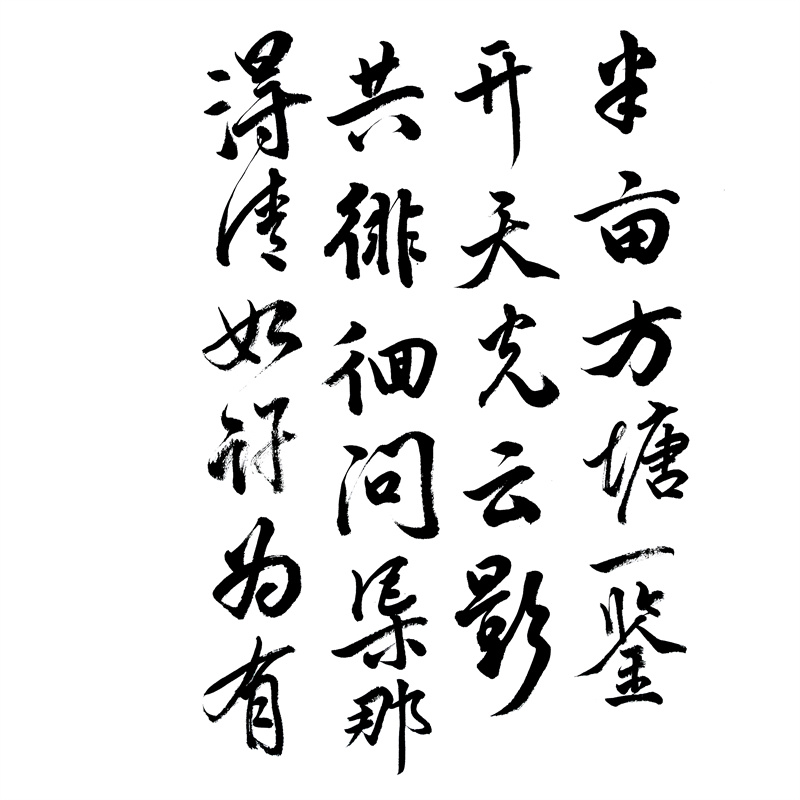 半亩方塘一鉴
开天光云影
共徘徊问渠那
得清如许为有